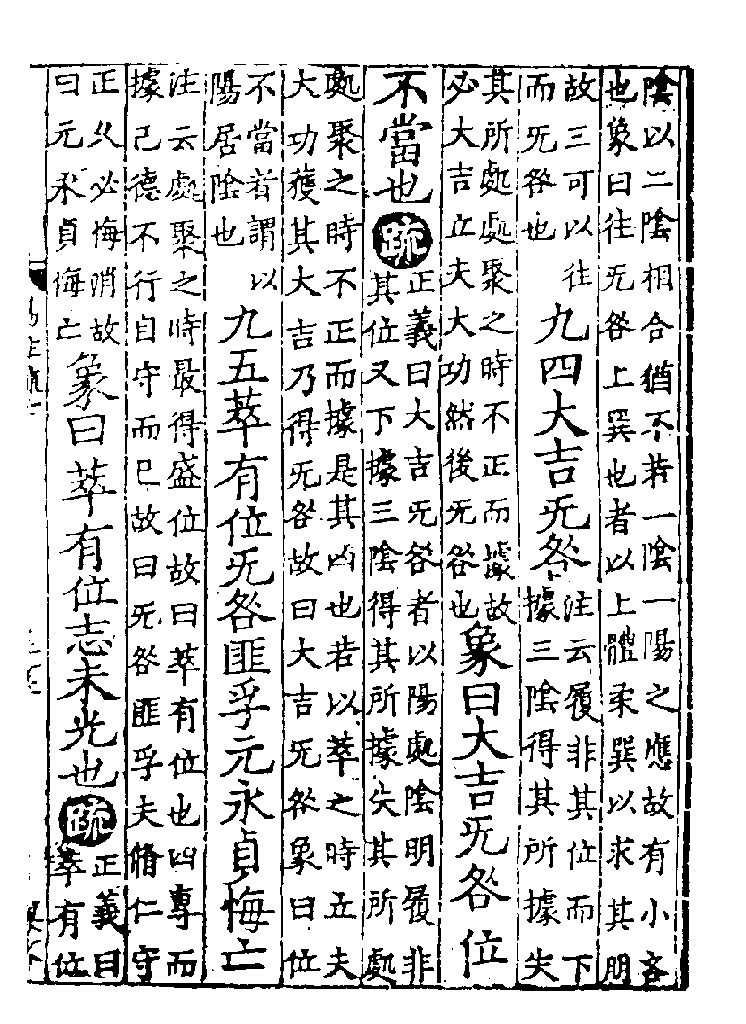 陰以二陰相合猶不若一陰一陽之應故有小吝
也象曰往旡咎上巽也者以上體柔巽以求其朋
故三可以往
而旡咎也
九四大吉旡咎
注云履非其位而下
據三陰得其所據失
其所處處聚之時不正而據故
必大吉立夫大功然後旡咎也
象曰大吉旡咎位
不當也疏
正義曰大吉旡咎者以陽處陰明履非
其位又下據三陰得其所據失其所處
處聚之時不正而據是其凶也若以萃之時立夫
大功獲其大吉乃得旡咎故曰大吉旡咎象曰位
不當者謂以
陽居陰也
九五萃有位旡咎匪孚元永貞悔亡
注云處聚之時最得盛位故曰萃有位也四專而
據己德不行自守而已故曰旡咎匪孚夫脩仁守
正久必悔消故
曰元永貞悔亡
象曰萃有位志未光也疏
正義曰
萃有位